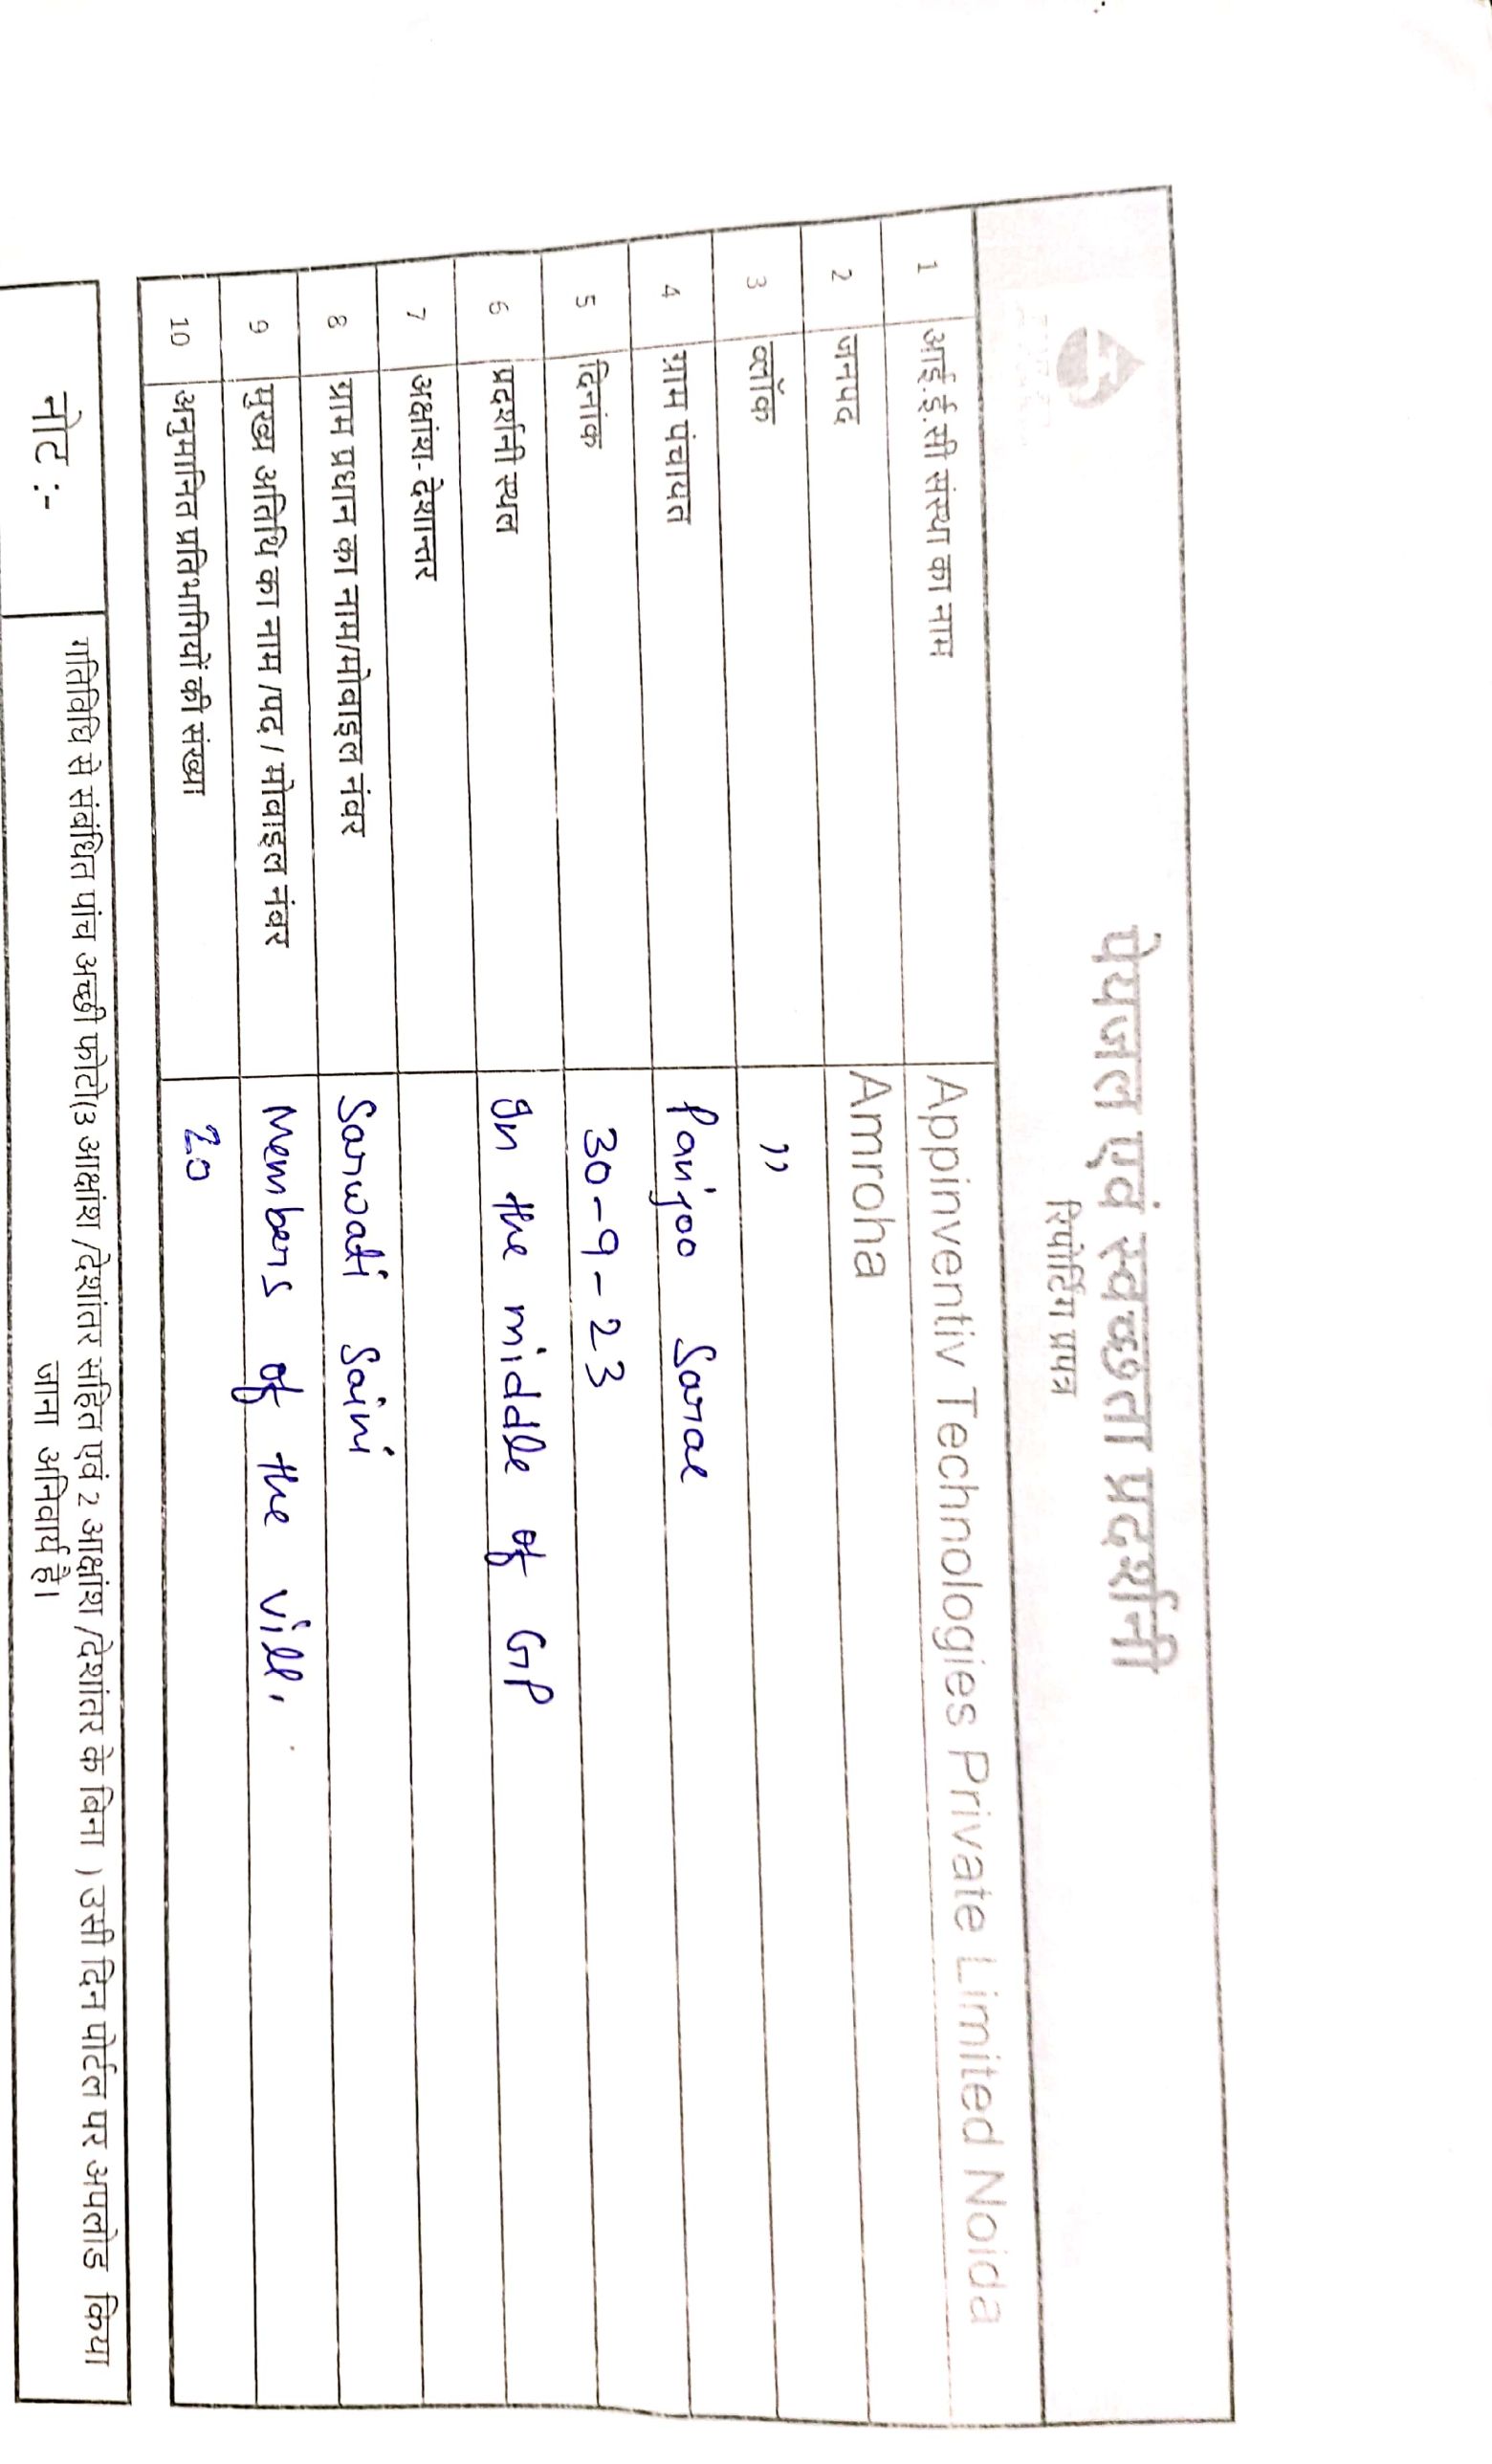 पेयजल एवं स्वच्छता प्रदर्शनी
रिपोर्टिंग प्रपत्र
1 आई.ई.सी संस्था का नाम Appinventiv Technologies Private Limited Noida
2 जनपद Amroha
3 ब्लॉक ”
4 ग्राम पंचायत Paijoo Sarae
5 दिनांक 30-9-23
6 प्रदर्शनी स्थल In the middle of GP
7 अक्षांश- देशान्तर
8 ग्राम प्रधान का नाम/मोबाइल नंबर Sarwati Saini
9 मुख्य अतिथि का नाम /पद / मोबाइल नंबर Members of the vill.
10 अनुमानित प्रतिभागियों की संख्या 20
नोट :- गतिविधि से संबंधित पांच अच्छी फोटो(3 आक्षांश /देशांतर सहित एवं 2 आक्षांश /देशांतर के बिना ) उसी दिन पोर्टल पर अपलोड किया
जाना अनिवार्य है।